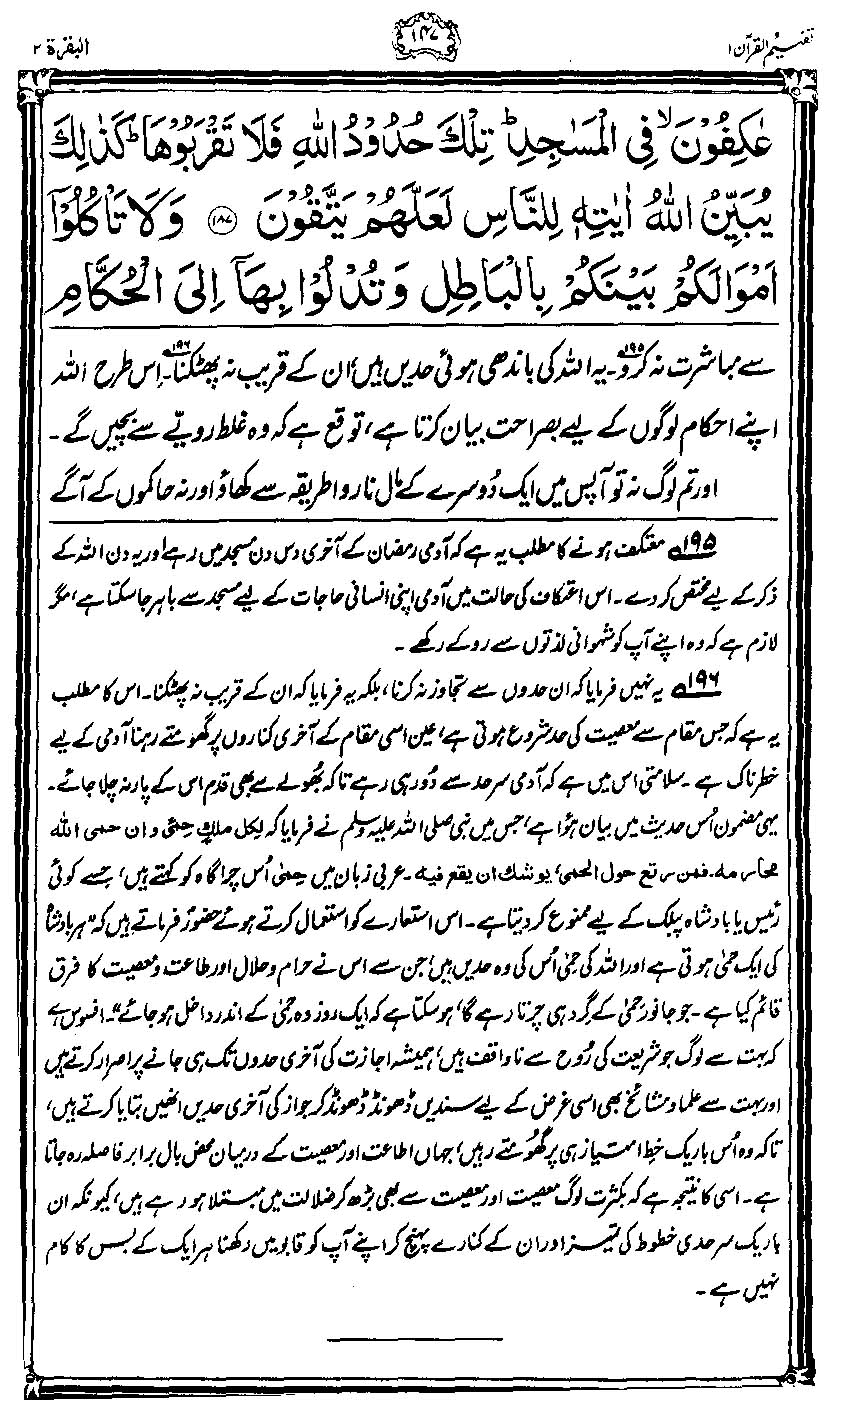 تفہیم القرآن ۱
۱۴۷
البقرۃ ۲
عٰكِفُوْنَ ۙ فِي الْمَسٰجِدِ ؕ تِلْكَ حُدُوْدُ اللّٰهِ فَلَا تَقْرَبُوْهَا ؕ كَذٰلِكَ
يُبَيِّنُ اللّٰهُ اٰيٰتِهٖ لِلنَّاسِ لَعَلَّهُمْ يَتَّقُوْنَ ۝۱۸۷ وَلَا تَاْكُلُوْۤا
اَمْوَالَكُمْ بَيْنَكُمْ بِالْبَاطِلِ وَتُدْلُوْا بِهَاۤ اِلَى الْحُكَّامِ
سے مباشرت نہ کرو۱۹۵۔ یہ اللہ کی باندھی ہوئی حدیں ہیں، ان کے قریب نہ پھٹکنا۱۹۶۔ اِس طرح اللہ
اپنے احکام لوگوں کے لیے بصراحت بیان کرتا ہے، توقع ہے کہ وہ غلط رویّے سے بچیں گے۔
اور تم لوگ نہ تو آپس میں ایک دُوسرے کے مال ناروا طریقہ سے کھاؤ اور نہ حاکموں کے آگے
۱۹۵ معتکف ہونے کا مطلب یہ ہے کہ آدمی رمضان کے آخری دس دن مسجد میں رہے اور یہ دن اللہ کے
ذکر کے لیے مختص کر دے۔ اس اعتکاف کی حالت میں آدمی اپنی انسانی حاجات کے لیے مسجد سے باہر جا سکتا ہے، مگر
لازم ہے کہ وہ اپنے آپ کو شہوانی لذتوں سے روکے رکھے۔
۱۹۶ یہ نہیں فرمایا کہ ان حدوں سے تجاوز نہ کرنا، بلکہ یہ فرمایا کہ ان کے قریب نہ پھٹکنا۔ اس کا مطلب
یہ ہے کہ جس مقام سے معصیت کی حد شروع ہوتی ہے، عین اسی مقام کے آخری کناروں پر گھومتے رہنا آدمی کے لیے
خطرناک ہے۔ سلامتی اس میں ہے کہ آدمی سرحد سے دُور ہی رہے تاکہ بھُولے سے بھی قدم اس کے پار نہ چلا جائے۔
یہی مضمون اُس حدیث میں بیان ہؤا ہے، جس میں نبی صلی اللہ علیہ وسلم نے فرمایا کہ لکل ملکٍ حِمًی و ان حمی اللہ
محارمہ۔ فمن رتع حول الحمیٰ یوشك ان یقع فیہ۔ عربی زبان میں حِمیٰ اُس چراگاہ کو کہتے ہیں، جسے کوئی
رئیس یا بادشاہ پبلک کے لیے ممنوع کر دیتا ہے۔ اس استعارے کو استعمال کرتے ہوئے حضورؐ فرماتے ہیں کہ "ہر بادشاہ
کی ایک حِمیٰ ہوتی ہے اور اللہ کی حِمیٰ اُس کی وہ حدیں ہیں، جن سے اس نے حرام و حلال اور طاعت و معصیت کا فرق
قائم کیا ہے۔ جو جانور حِمیٰ کے گرد ہی چرتا رہے گا، ہو سکتا ہے کہ ایک روز وہ حِمیٰ کے اندر داخل ہو جائے"۔ افسوس ہے
کہ بہت سے لوگ جو شریعت کی رُوح سے ناواقف ہیں، ہمیشہ اجازت کی آخری حدوں تک ہی جانے پر اصرار کرتے ہیں
اور بہت سے علما و مشائخ بھی اسی غرض کے لیے سندیں ڈھونڈ ڈھونڈ کر جواز کی آخری حدیں انھیں بتایا کرتے ہیں،
تاکہ وہ اُس باریک خطِ امتیاز ہی پر گھُومتے رہیں، جہاں اطاعت اور معصیت کے درمیان محض بال برابر فاصلہ رہ جاتا
ہے۔ اسی کا نتیجہ ہے کہ بکثرت لوگ معصیت اور معصیت سے بھی بڑھ کر ضلالت میں مبتلا ہو رہے ہیں، کیونکہ ان
باریک سرحدی خطوط کی تمیز اور ان کے کنارے پہنچ کر اپنے آپ کو قابو میں رکھنا ہر ایک کے بس کا کام
نہیں ہے۔